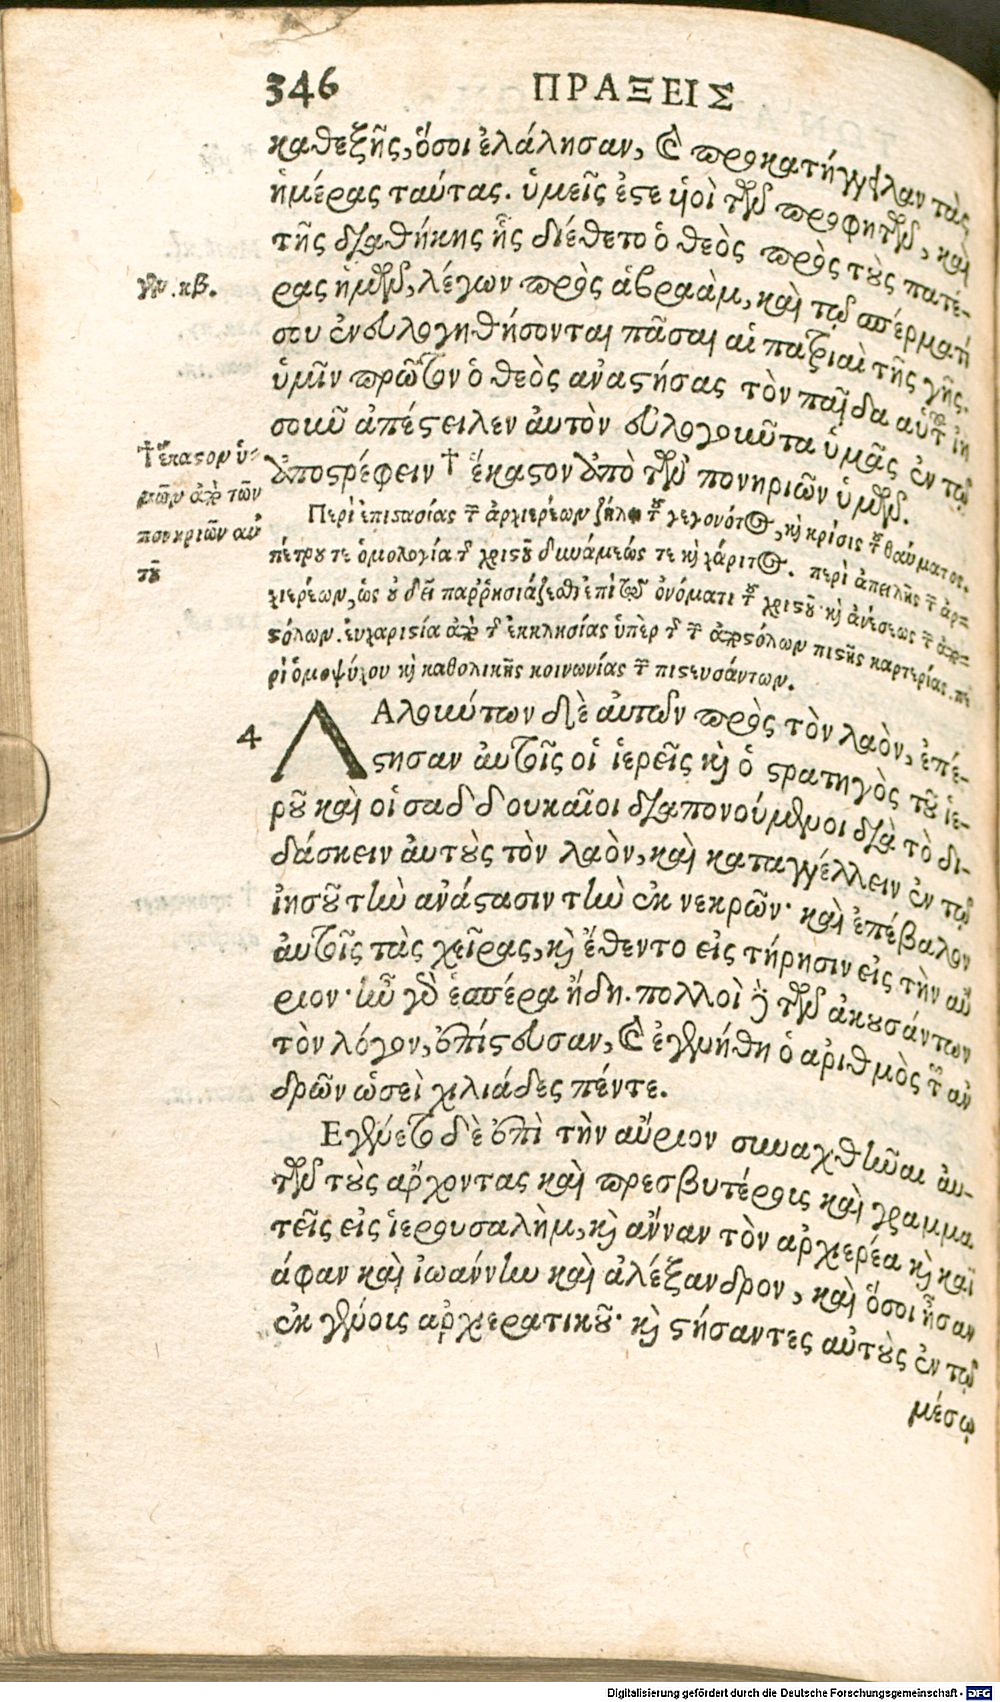 346 ΠΡΑΞΕΙΣ
καθεξῆς, ὅσοι ἐλάλησαν, καὶ προκατήγγειλαν τὰς
ἡμέρας ταύτας. ὑμεῖς ἐστε υἱοὶ τῶν προφητῶν, καὶ
τῆς διαθήκης ἧς διέθετο ὁ θεὸς πρὸς τοὺς πατέ-
γεν. κβ.
ρας ἡμῶν, λέγων πρὸς ἀβραὰμ, καὶ τῷ σπέρματί
σου ἐνευλογηθήσονται πᾶσαι αἱ πατριαὶ τῆς γῆς.
ὑμῖν πρῶτον ὁ θεὸς ἀναστήσας τὸν παῖδα αὐτοῦ ἰη
σοῦν ἀπέστειλεν αὐτὸν εὐλογοῦντα ὑμᾶς ἐν τῷ
ἀποστρέφειν † ἕκαστον ἀπὸ τῶν πονηριῶν ὑμῶν.
† ἕκαστον ὑ-
μῶν ἀπὸ τῶν
πονηριῶν αὐ
τοῦ
Περὶ ἐπιστασίας τῶν ἀρχιερέων ζήλῳ τοῦ γεγονότος, καὶ κρίσις τοῦ θαύματος.
πέτρου τε ὁμολογία τῆς χριστοῦ δυνάμεώς τε καὶ χάριτος. περὶ ἀπειλῆς τῶν ἀρ-
χιερέων, ὡς οὐ δεῖ παρρησιάζεσθαι ἐπὶ τῷ ὀνόματι τοῦ χριστοῦ· καὶ ἀνέσεως τῶν ἀπο-
στόλων. εὐχαριστία ἀπὸ τῆς ἐκκλησίας ὑπὲρ τῆς τῶν ἀποστόλων πιστῆς καρτερίας. πε
ρὶ ὁμοψύχου καὶ καθολικῆς κοινωνίας τῶν πιστευσάντων.
4 ΛΑλούντων δὲ αὐτῶν πρὸς τὸν λαὸν, ἐπέ-
στησαν αὐτοῖς οἱ ἱερεῖς καὶ ὁ στρατηγὸς τοῦ ἱε-
ροῦ καὶ οἱ σαδδουκαῖοι διαπονούμενοι διὰ τὸ δι-
δάσκειν αὐτοὺς τὸν λαὸν, καὶ καταγγέλλειν ἐν τῷ
ἰησοῦ τὴν ἀνάστασιν τὴν ἐκ νεκρῶν· καὶ ἐπέβαλον
αὐτοῖς τὰς χεῖρας, καὶ ἔθεντο εἰς τήρησιν εἰς τὴν αὔ
ριον· ἦν γὰρ ἑσπέρα ἤδη. πολλοὶ δὲ τῶν ἀκουσάντων
τὸν λόγον, ἐπίστευσαν, καὶ ἐγενήθη ὁ ἀριθμὸς τῶν ἀν
δρῶν ὡσεὶ χιλιάδες πέντε.
Εγένετο δὲ ἐπὶ τὴν αὔριον συναχθῆναι αὐ-
τῶν τοὺς ἄρχοντας καὶ πρεσβυτέρους καὶ γραμμα
τεῖς εἰς ἱερουσαλὴμ, καὶ ἄνναν τὸν ἀρχιερέα καὶ καϊ
άφαν καὶ ἰωάννην καὶ ἀλέξανδρον, καὶ ὅσοι ἦσαν
ἐκ γένους ἀρχιερατικοῦ· καὶ στήσαντες αὐτοὺς ἐν τῷ
μέσῳ
Digitalisierung gefördert durch die Deutsche Forschungsgemeinschaft - DFG